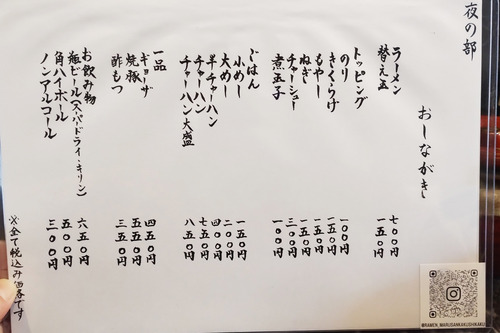 夜の部
おしながき
ラーメン 七〇〇円
替え玉 一五〇円
トッピング
のり 一〇〇円
きくらげ 一五〇円
もやし 一五〇円
ねぎ 一五〇円
チャーシュー 三〇〇円
煮玉子 一〇〇円
ごはん
小めし 一五〇円
大めし 二〇〇円
半チャーハン 四〇〇円
チャーハン 七五〇円
チャーハン大盛 八五〇円
一品
ギョーザ 四五〇円
焼豚 五五〇円
酢もつ 三五〇円
お飲み物
瓶ビール(スーパードライ・キリン) 六五〇円
角ハイボール 五〇〇円
ノンアルコール 三〇〇円
※全て税込み価格です